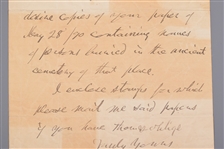 desire copies of your paper of
May 28/90 containing names
of persons buried in the ancient
cemetery of that place.
I enclose stamps for which
please mail me said papers
if you have them
Truly Yours